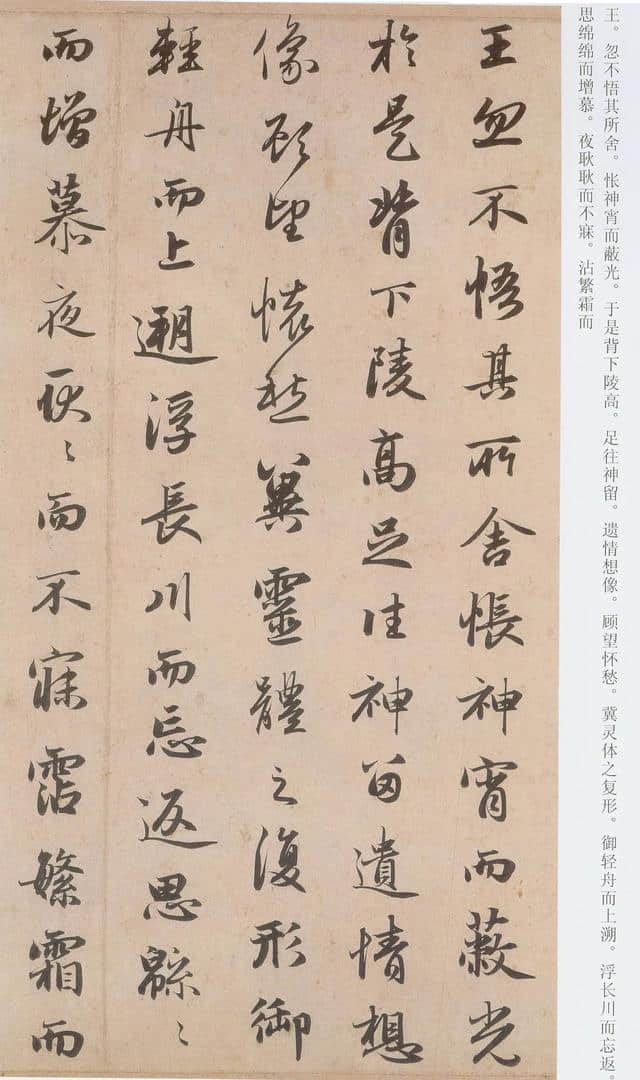 王。忽不悟其所舍。怅神宵而蔽光。于是背下陵高。足往神留。遗情想像。顾望怀愁。冀灵体之复形。御轻舟而上溯。浮长川而忘返。
思绵绵而增慕。夜耿耿而不寐。沾繁霜而
王忽不悟其所舍悵神宵而蔽光
於是背下陵高足往神留遺情想
像顧望懷愁冀靈體之復形御
輕舟而上遡浮長川而忘返思緜〻
而增慕夜耿〻而不寐霑繁霜而